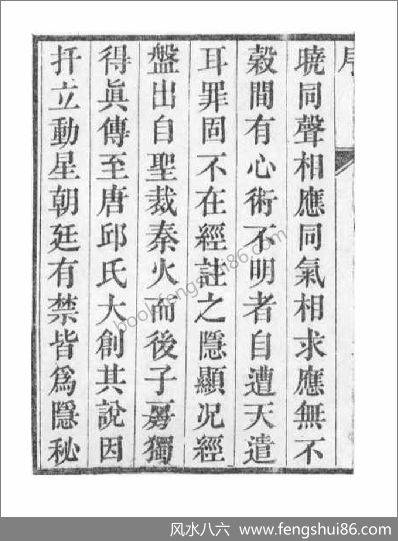 曉同聲相應同氣相求應無不
穀間有心術不明者自遭天遣
耳罪固不在經註之隱顯况經
盤出自聖裁秦火而後子房獨
得眞傳至唐邱氏大創其說因
扦立動星朝廷有禁皆爲隱秘
book.fengshui86.com
风水八六 www.fengshui86.com